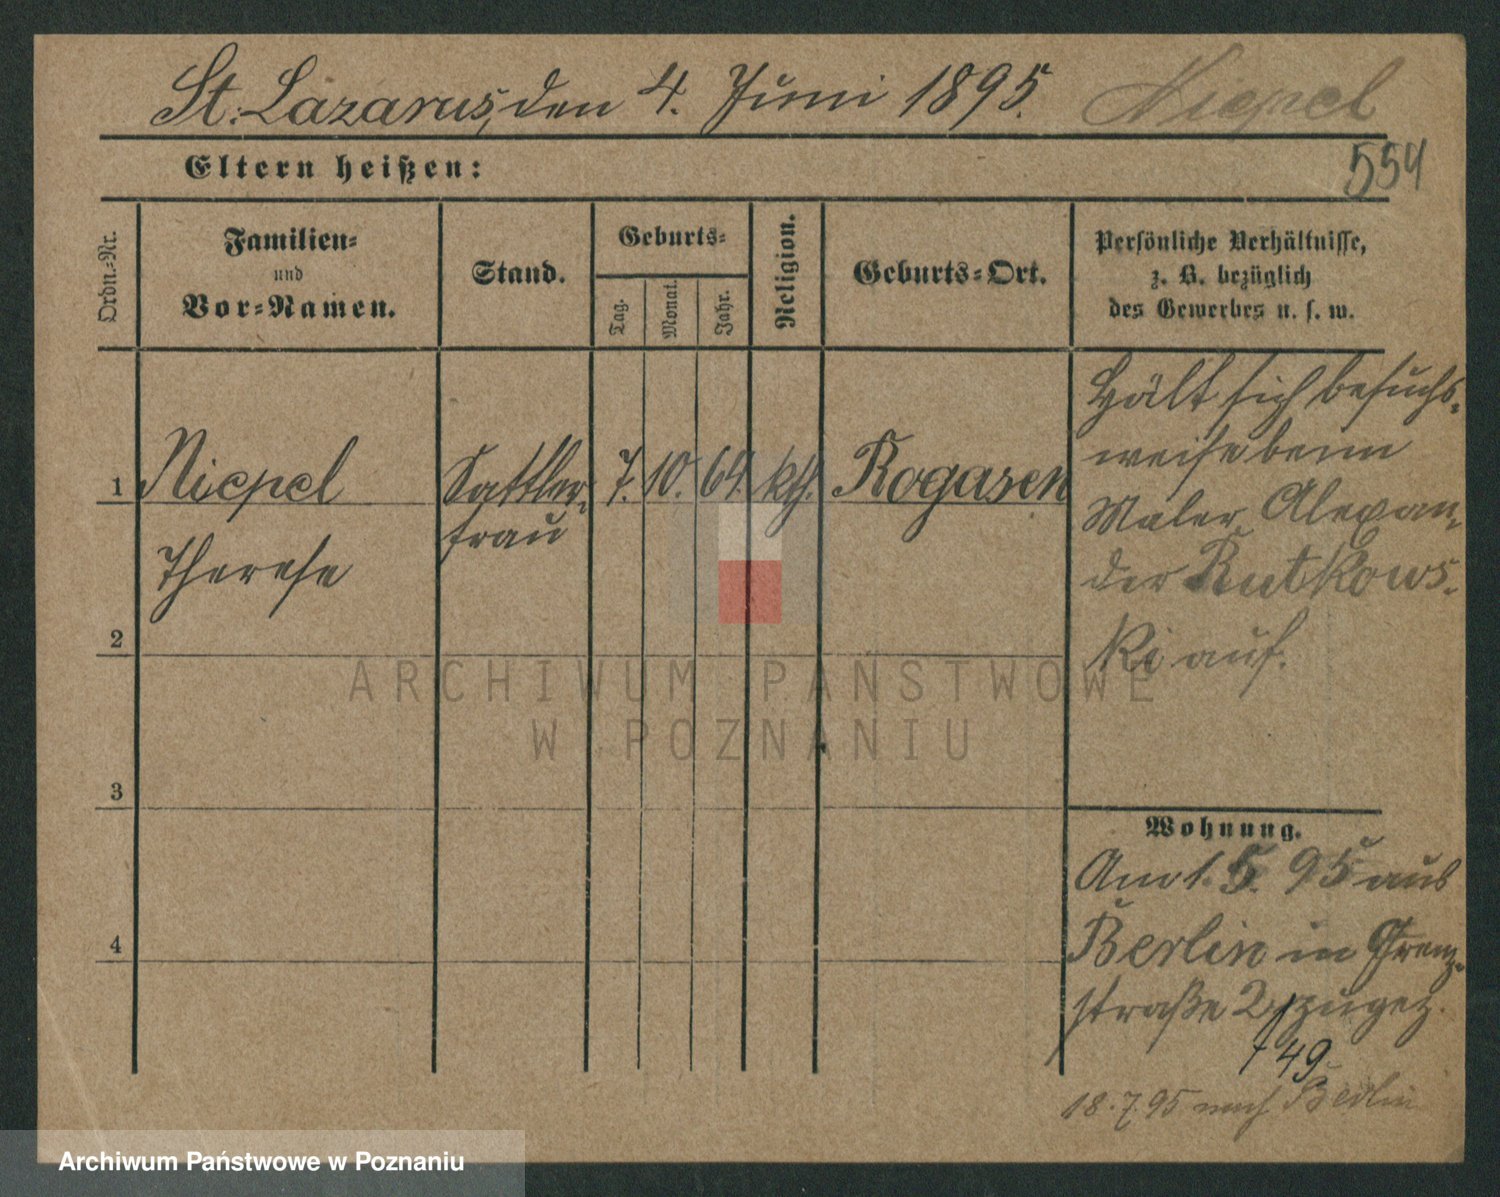 St. Lazarus, den 4. Juni 1895. Niepel
554
Eltern heißen:
Ordn.=Nr.
Familien=
und
Vor=Namen.
Stand.
Geburts=
Tag.
Monat.
Jahr.
Religion.
Geburts=Ort.
Persönliche Verhältnisse,
z. B. bezüglich
des Gewerbes u. s. w.
1 Niepel Sattler- 7. 10. 64. kth. Rogasen
frau
Therese
2
3
4
Hält sich besuchs-
weise beim
Maler Alexan-
der Rutkows-
ki auf.
Wohnung.
Am 1. 5. 95 aus
Berlin in Grenz-
straße 2 zugez.
49
18.7.95 nach Berlin
ARCHIWUM PAŃSTWOWE
W POZNANIU
Archiwum Państwowe w Poznaniu